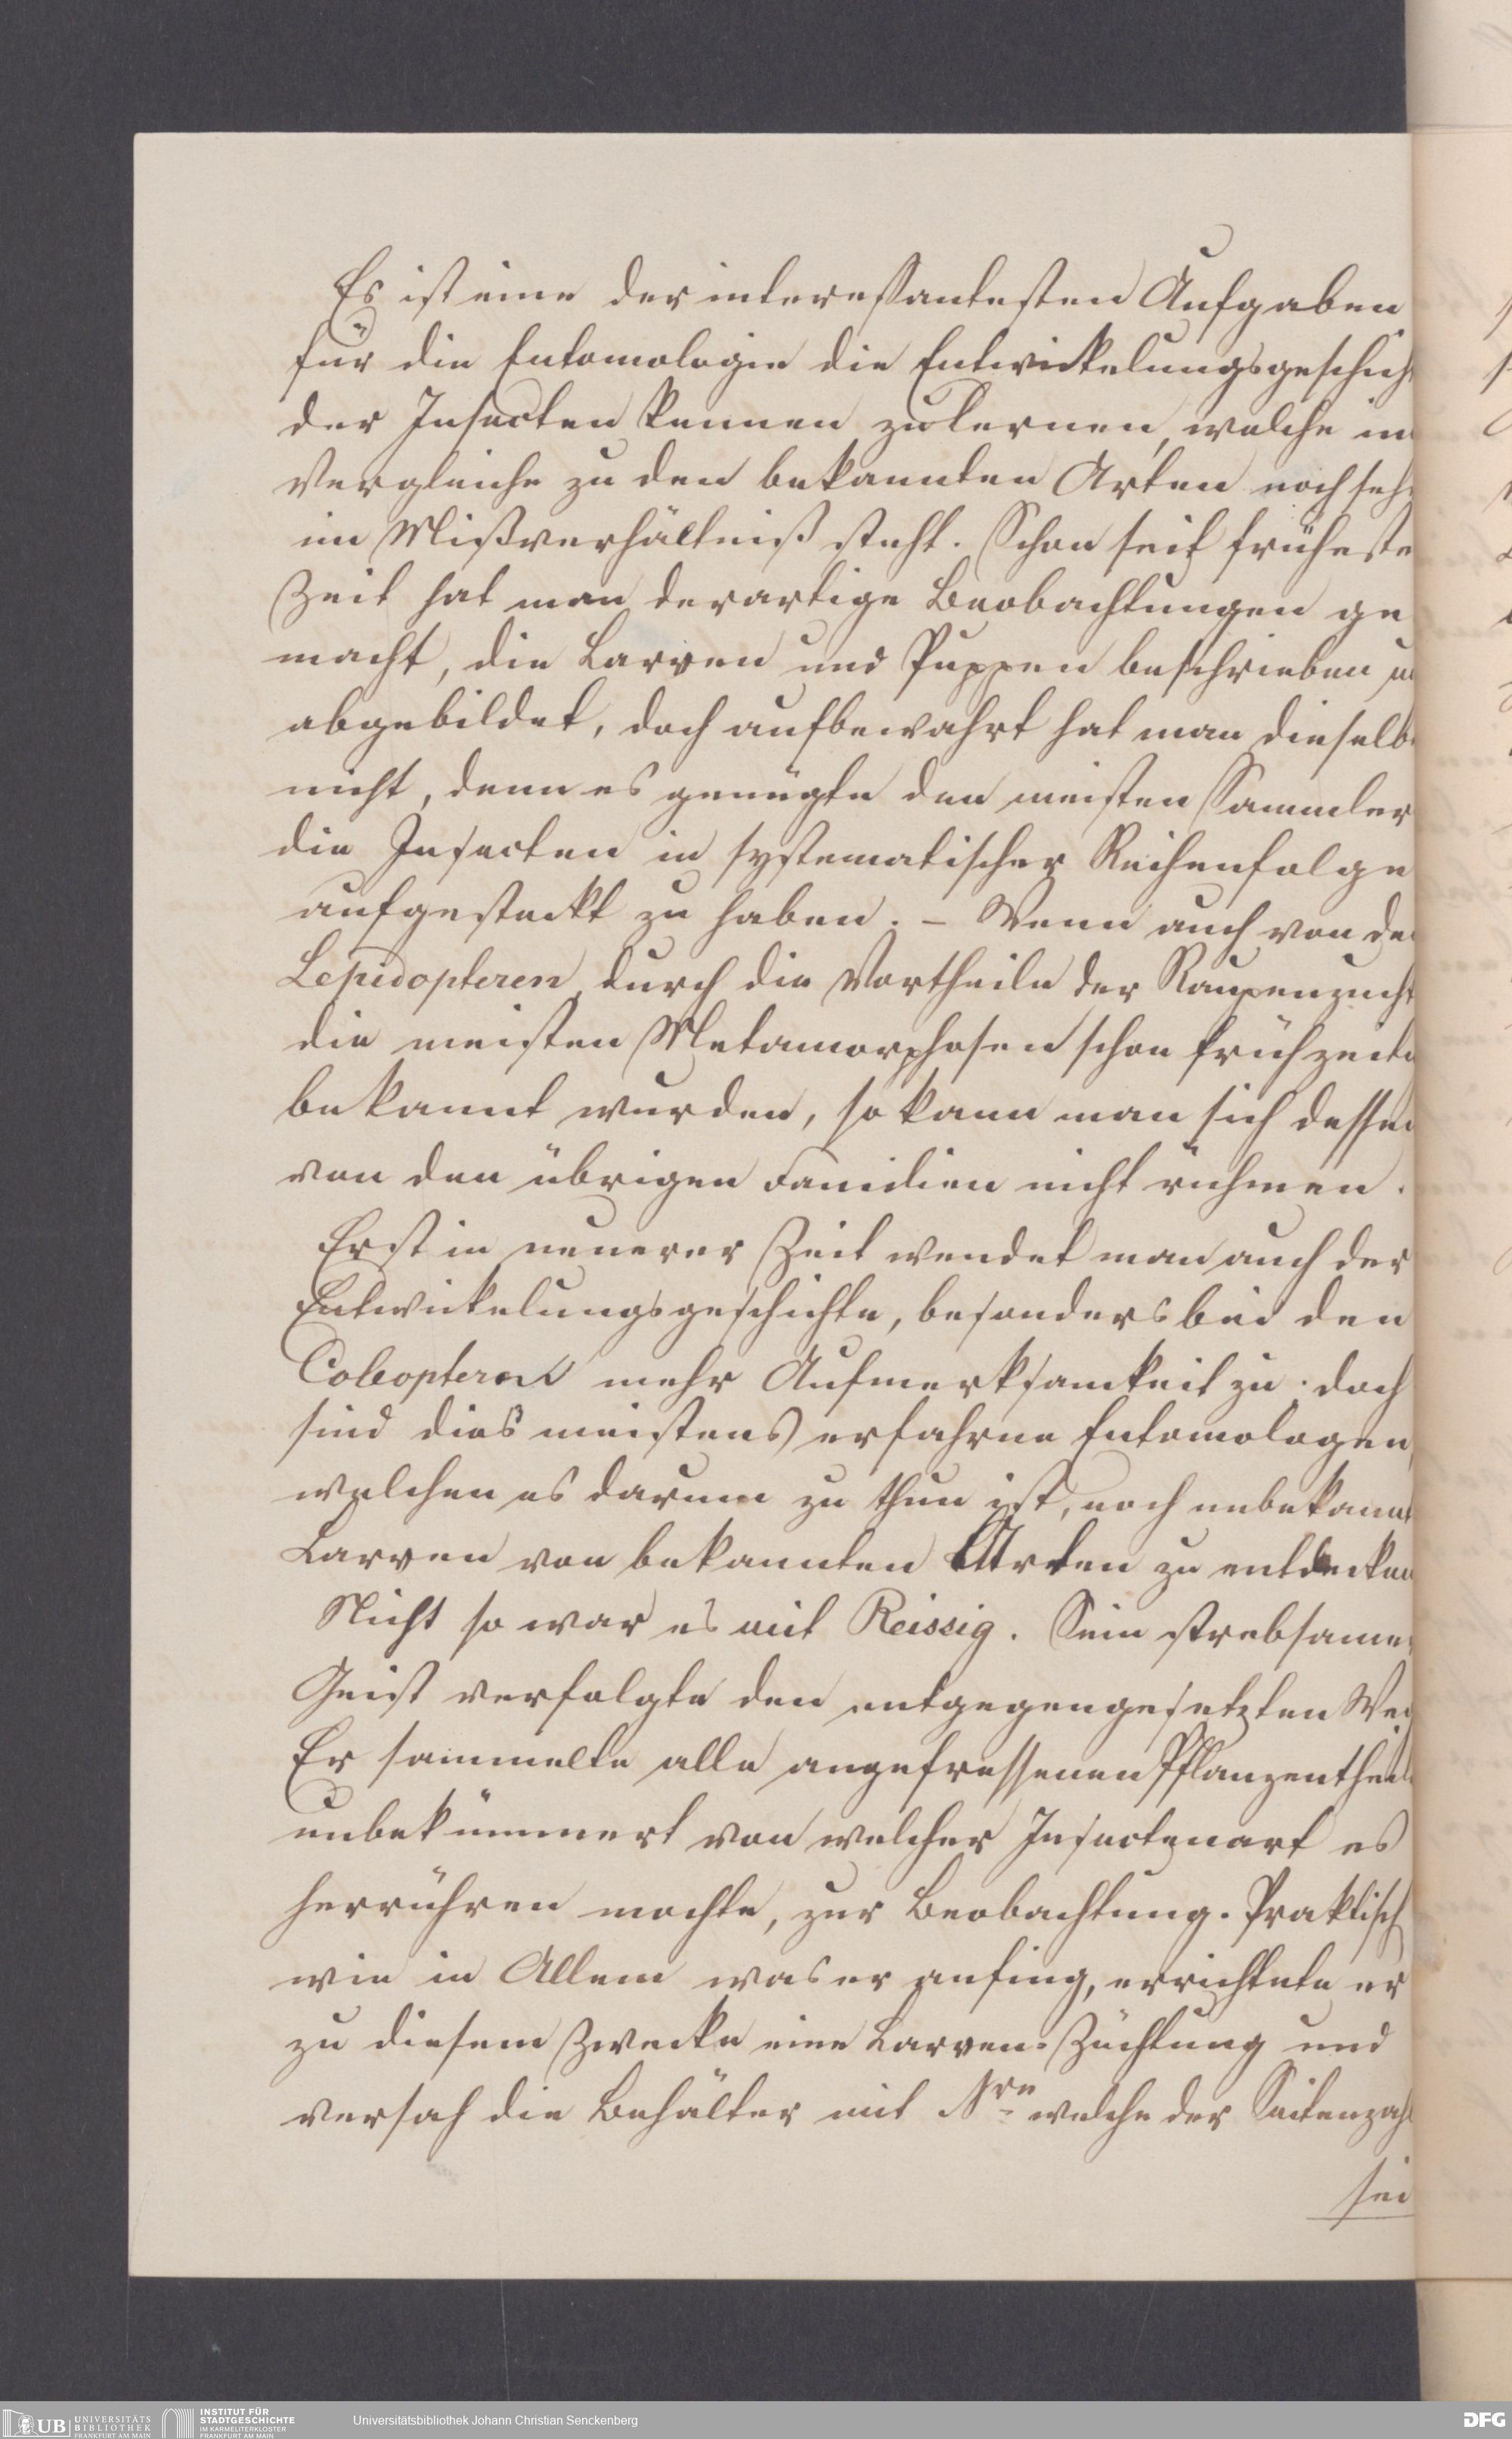 Es ist eine der interessantesten Aufgaben
für die Entomologie die Entwickelungsgeschich
der Insecten kennen zu lernen, welche im
Vergleiche zu den bekannten Arten noch seh
im Mißverhältniß steht. Schon seit früheste
Zeit hat man derartige Beobachtungen ge
macht, die Larven und Puppen beschrieben u
abgebildet, doch aufbewahrt hat man dieselb
nicht, denn es genügte den meisten Sammler
die Insecten in systematischer Reihenfolge
aufgesteckt zu haben. – Wenn auch von de
Lepidopteren durch die Vortheile der Raupenzucht
die meisten Metamorphosen schon frühzeiti
bekannt wurden, so kann man sich dessen
von den übrigen Familien nicht rühmen.
Erst in neuerer Zeit wendet man auch der
Entwickelungsgeschichte, besonders bei den
Coleopteren mehr Aufmerksamkeit zu. doch
sind dies meistens erfahrne Entomologen,
welchen es darum zu thun ist, noch unbekannt
Larven von bekannten Arten zu entdecken
Nicht so war es mit Reissig. Sein strebsamer
Geist verfolgte den entgegengesetzten Weg
Er sammelte alle angefressenen Pflanzentheil
unbekümmert von welcher Insectenart es
herrühren mochte, zur Beobachtung. Praktisch
wie in Allem was er anfing, errichtete er
zu diesem Zwecke eine Larven-Züchtung und
versah die Behälter mit Nrn welche der Seitenzahl
sei
UB UNIVERSITÄTS
BIBLIOTHEK
FRANKFURT AM MAIN
INSTITUT FÜR
STADTGESCHICHTE
IM KARMELITERKLOSTER
FRANKFURT AM MAIN
Universitätsbibliothek Johann Christian Senckenberg
DFG